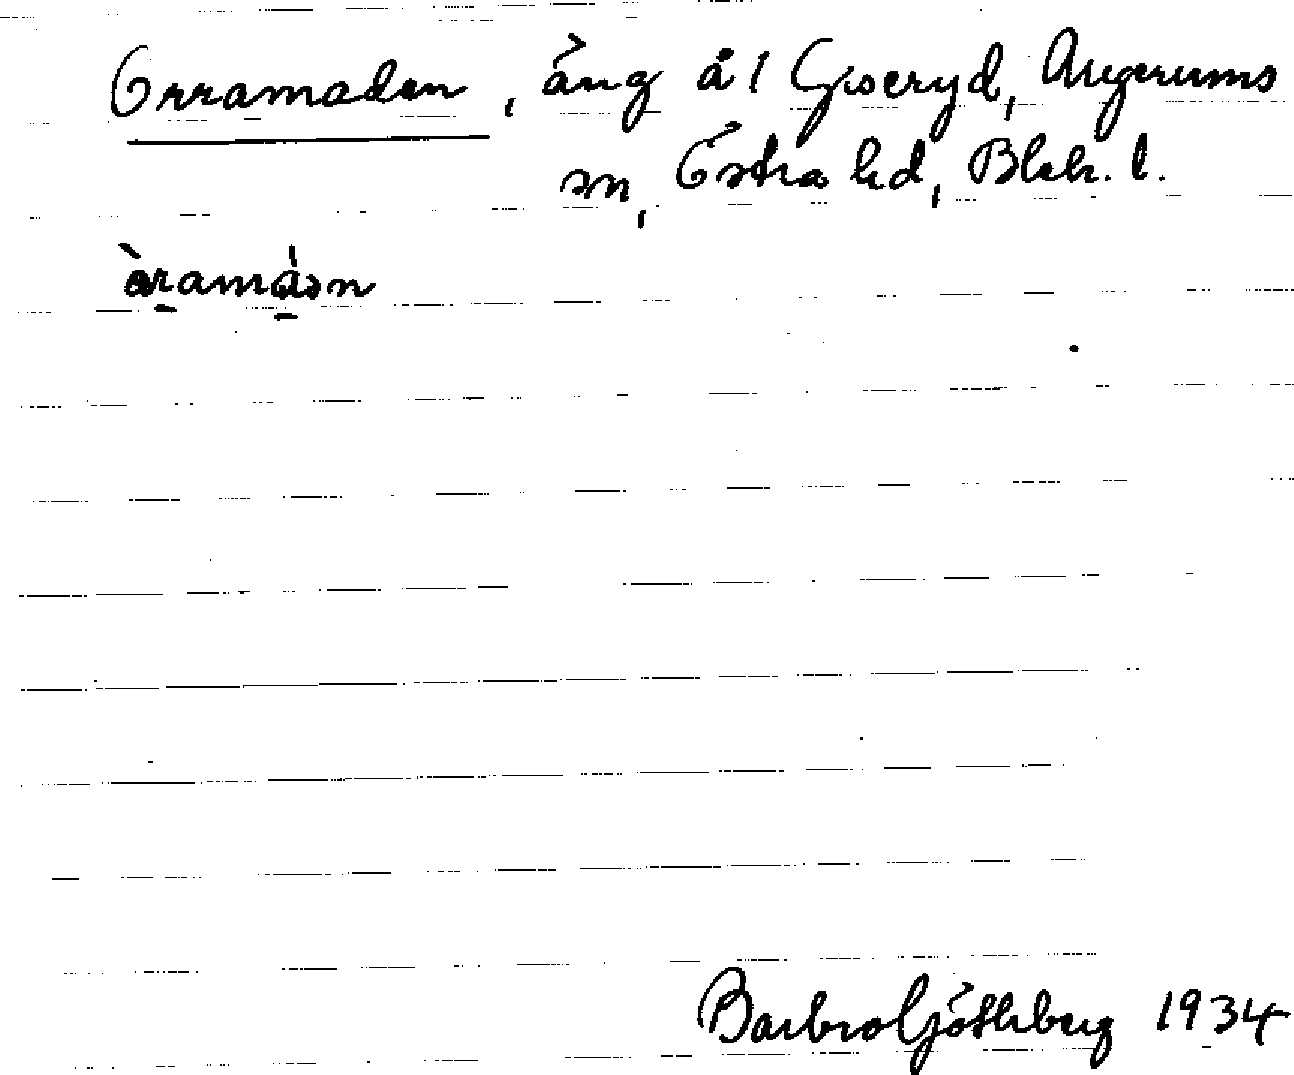 Orramaden, äng å 1 Gisseryd, Augerums
sn, Östra hd, Blek. l.
àramáən
Barbro Göthberg 1934